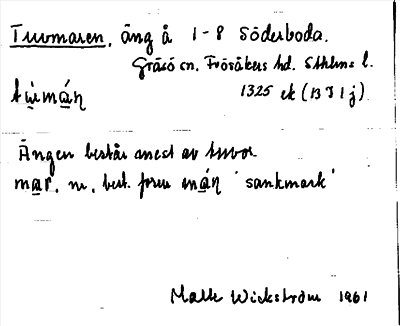 Tuvmaren, äng å 1-8 Söderboda.
Gräsö sn. Frösåkers hd. Sthlms l.
tu̱mán 1325 ek (13 I 1 j)
Ängen består mest av tuvor
mar, m, best. form mán 'sankmark'
Matts Wickström 1961